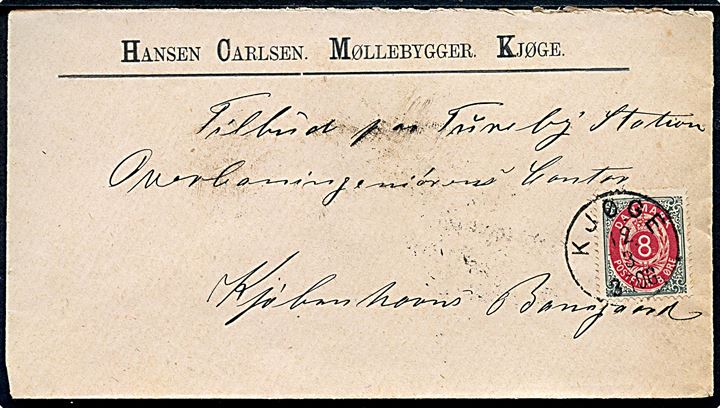 HANSEN CARLSEN. MØLLEBYGGER. KJØGE.
Tilbud paa Tureby Station
Overbaningeniørens Contor
Kjøbenhavns Banegaard
KJØGE
DANMARK
8
POSTFRIM. 8 ØRE